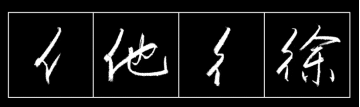 亻他彳徐